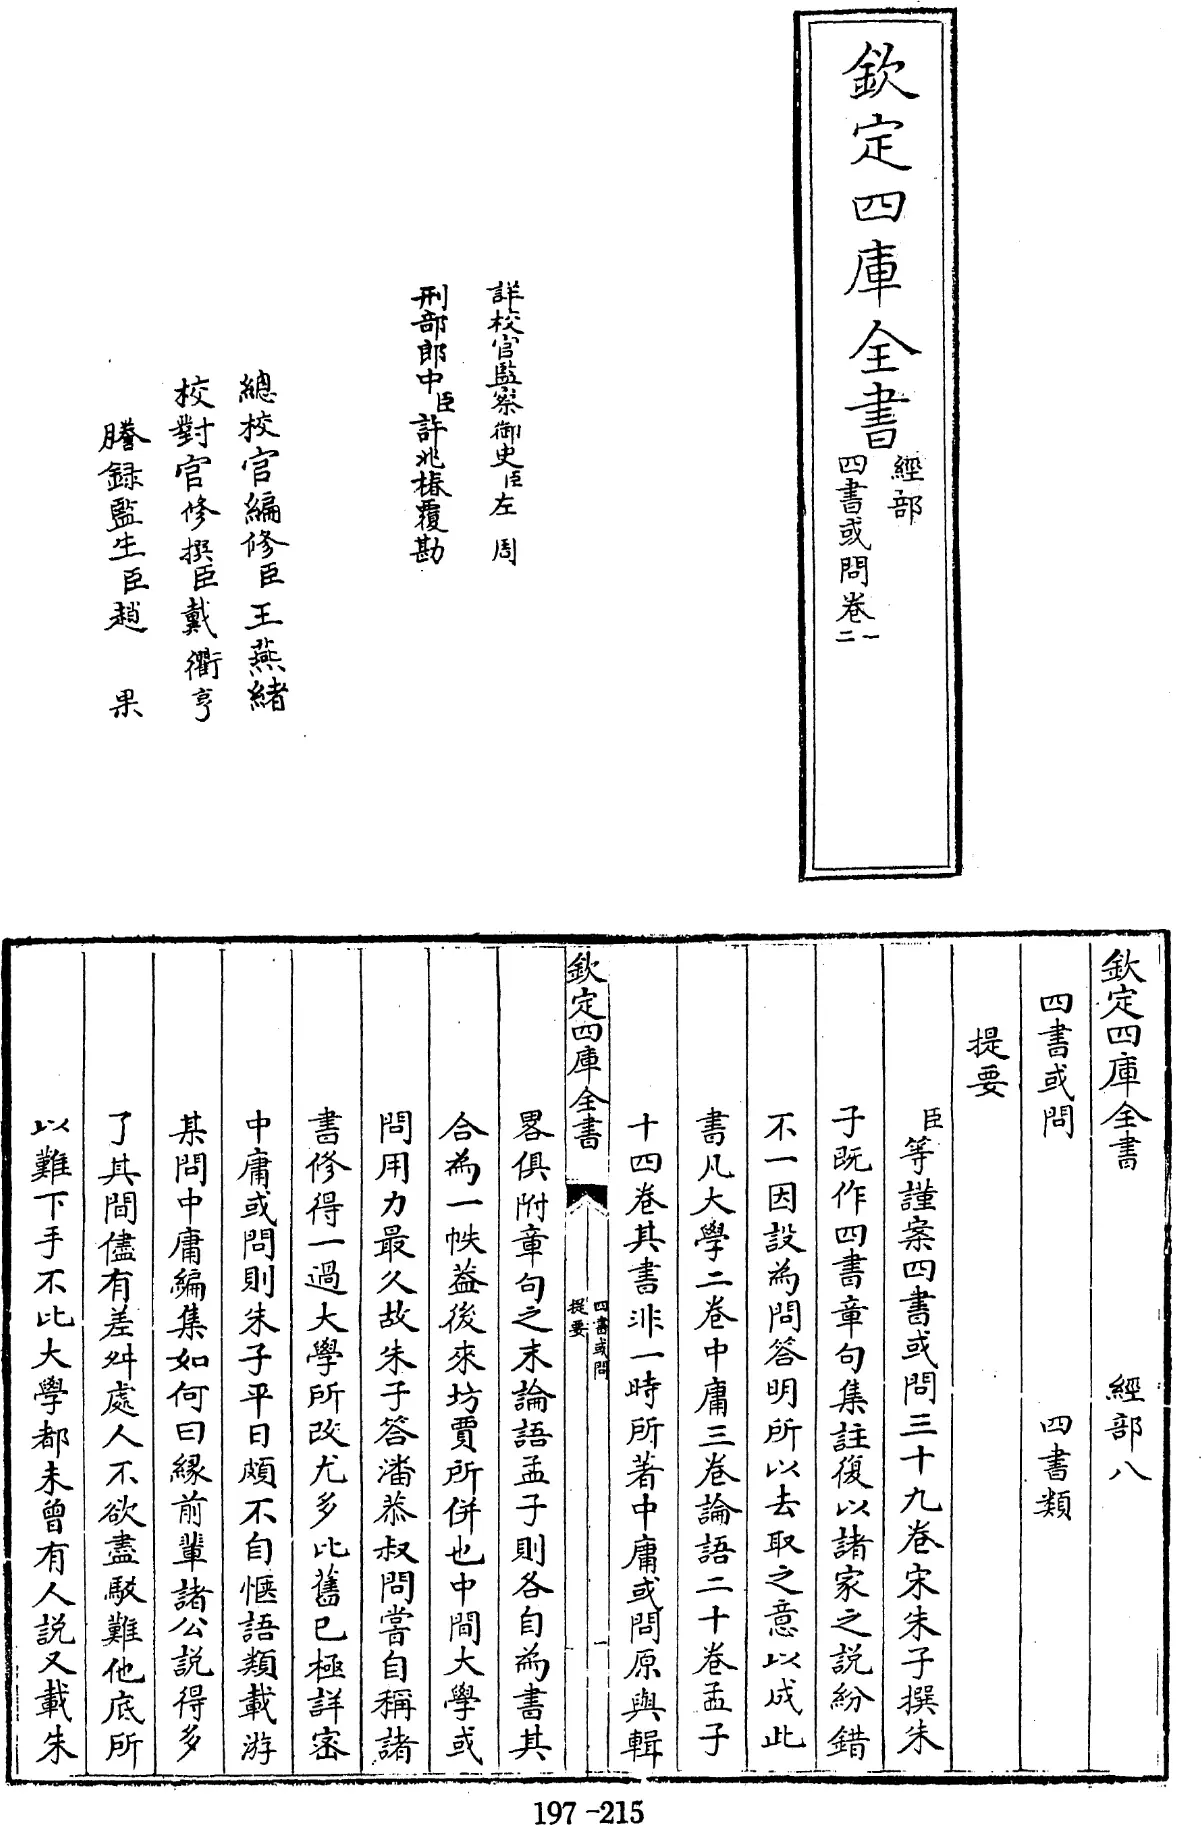 欽定四庫全書
經部
四書或問卷一
二
詳校官監察御史臣左周
刑部郎中臣許兆椿覆勘
總校官編修臣王燕緒
校對官修撰臣戴衢亨
謄錄監生臣趙果
欽定四庫全書 經部八
四書或問 四書類
提要
臣等謹案四書或問三十九卷宋朱子撰朱
子既作四書章句集註復以諸家之說紛錯
不一因設為問答明所以去取之意以成此
書凡大學二卷中庸三卷論語二十卷孟子
十四卷其書非一時所著中庸或問原與輯
欽定四庫全書
四書或問
提要
一
畧俱附章句之末論語孟子則各自為書其
合為一帙葢後來坊賈所併也中間大學或
問用力最久故朱子答潘恭叔問嘗自稱諸
書修得一過大學所改尤多比舊已極詳密
中庸或問則朱子平日頗不自愜語類載游
某問中庸編集如何曰緣前輩諸公説得多
了其間儘有差舛處人不欲盡駁難他底所
以難下手不比大學都未曾有人説又載朱
197-215